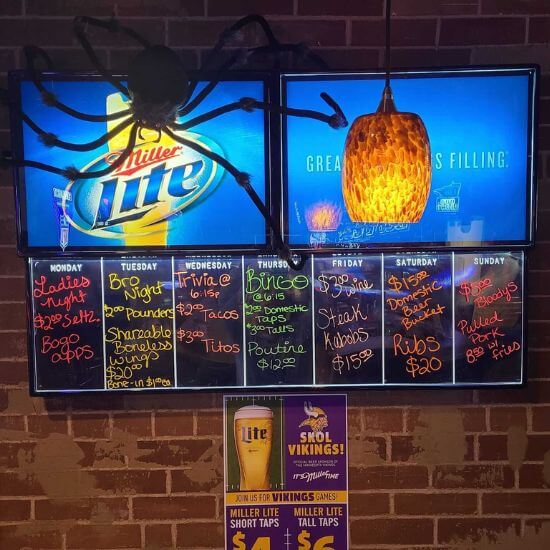 Miller
Lite
GREA
S FILLING.
MONDAY
Ladies
Night
$2.00 Seltz.
Bogo
apps
TUESDAY
Bro
Night
$2.00 Pounders
Shareable
Boneless
wings
$20.00
Bone-in $1.00 ea
WEDNESDAY
Trivia @
6:15p
$2.00 Tacos
$3.00 Titos
THURSD
Bingo
@ 6:15
$2.00 Domestic
Taps
$3.00 Talls
Poutine
$12.00
FRIDAY
$3.00 wine
Steak
Kabobs
$15.00
SATURDAY
$15.00
Domestic
Beer
Bucket
Ribs
$20
SUNDAY
$5.00
Bloodys
Pulled
Pork
8.50 w/
Fries
Lite
SKOL
VIKINGS!
OFFICIAL BEER SPONSOR OF
THE MINNESOTA VIKINGS
IT'S Miller TIME
JOIN US FOR VIKINGS GAMES!
MILLER LITE
SHORT TAPS
$4
MILLER LITE
TALL TAPS
$6